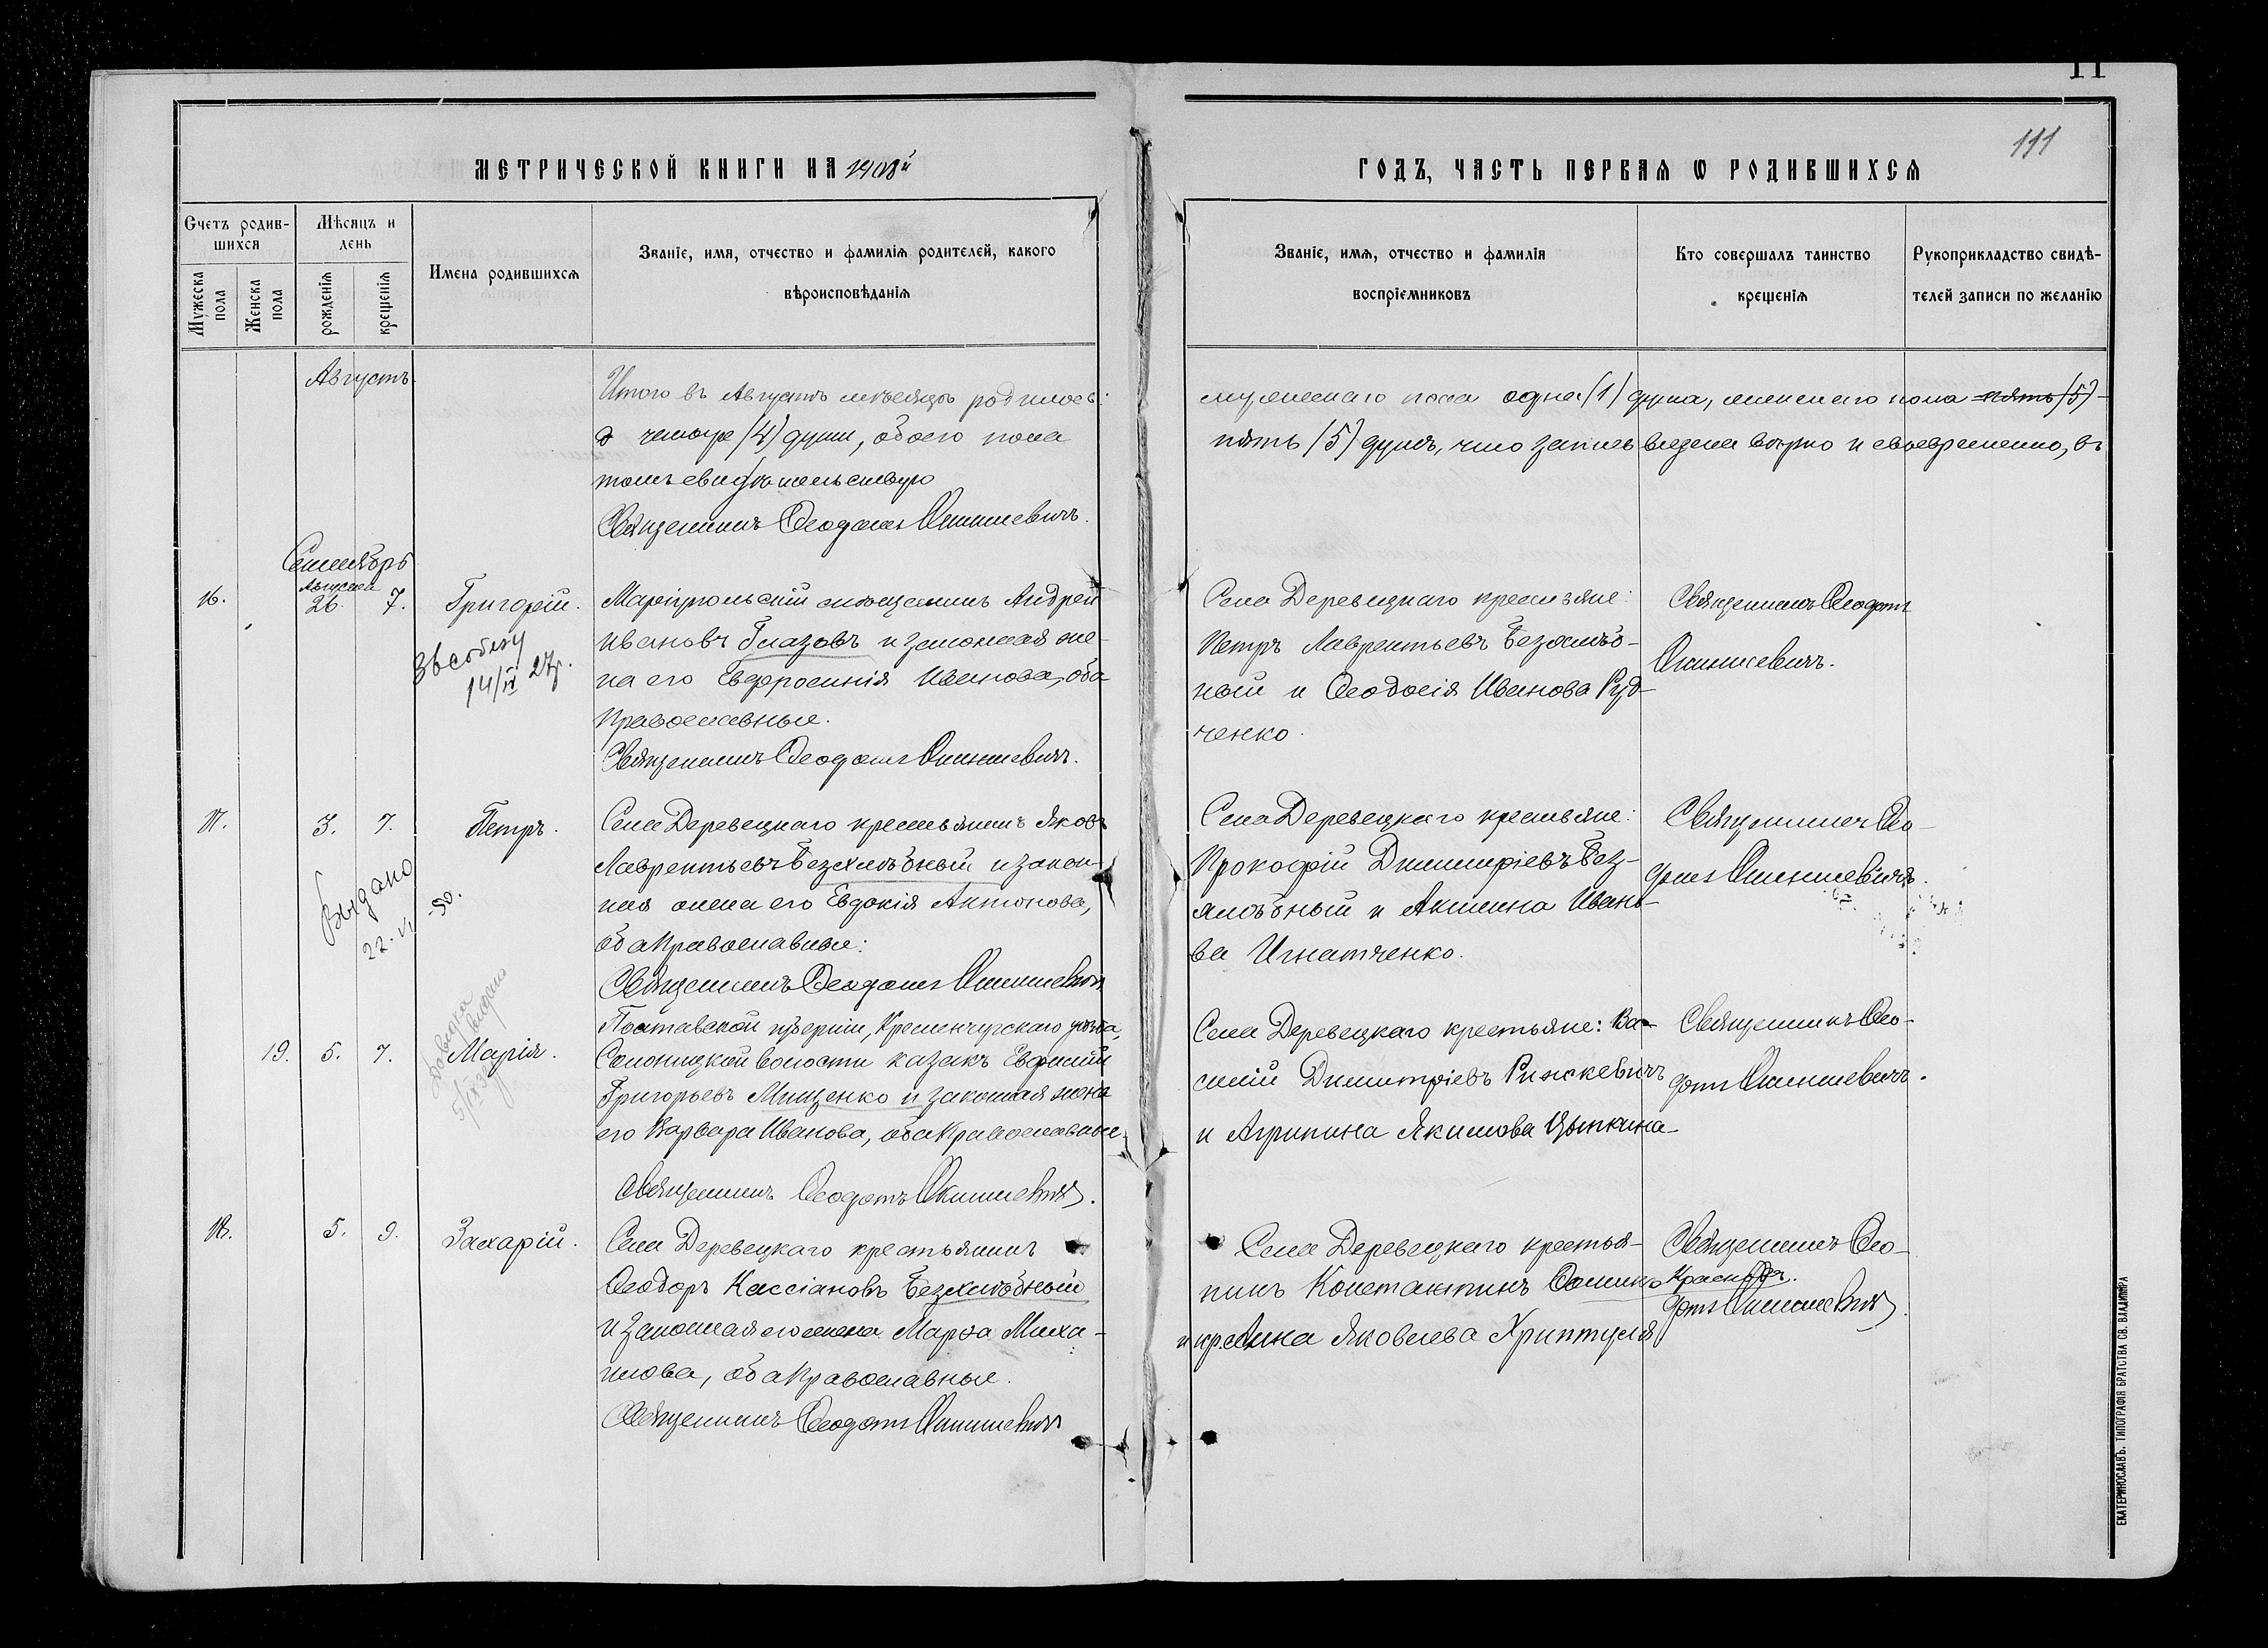 11
111
МЕТРИЧЕСКОЙ КНИГИ НА 1908й
ГОДЪ, ЧАСТЬ ПЕРВАЯ Ѡ РОДИВШИХСЯ
Счетъ родив-
шихся
Мужеска
пола
Женска
пола
Мѣсяцъ и
день
рожденія
крещенія
Имена родившихся
Званіе, имя, отчество и фамилія родителей, какого
вѣроисповѣданія
Званіе, имя, отчество и фамилія
воспріемниковъ
Кто совершалъ таинство
крещенія
Рукоприкладство свидѣ-
телей записи по желанію
Августъ.
Итого въ Августѣ мѣсяцѣ родилось:
мужескаго пола одна (1) душа, женскаго пола пять (5)
четыре (4) души, обоего пола
пять (5) душъ, что запись ведена вѣрно и своевременно, въ
томъ свидѣтельствую
Священникъ Ѳеодотъ Акишевичъ.
Сентябрь
Августа
16.
26.
7.
Григорій.
14/IV 27г.
Маріупольскій мѣщанинъ Андрей
Ивановъ Глазовъ и законная же-
на его Евфросинія Иванова, оба
православные.
Священникъ Ѳеодотъ Акишевичъ.
Села Деревецкаго крестьяне:
Петръ Лаврентьевъ Безхлѣб-
ный и Ѳеодосія Иванова Руд-
ченко.
Священникъ Ѳеодотъ
Акишевичъ.
17.
3.
7.
Петръ.
Выдано
22.VI -50.
Села Деревецкаго крестьянинъ Яковъ
Лаврентьевъ Безхлѣбный и закон-
ная жена его Евдокія Антонова,
оба православные:
Священникъ Ѳеодотъ Акишевичъ
Села Деревецкаго крестьяне:
Прокофій Димитріевъ Без-
хлѣбный и Акилина Ивано-
ва Игнатченко.
Священникъ Ѳео-
дотъ Акишевичъ.
19.
5.
7.
Марія.
Полтавской губерніи, Кременчугскаго уѣзда,
Солоницкой волости казакъ Евфимій
Григорьевъ Мищенко и законная жена
его Варвара Иванова, оба православные.
Священникъ Ѳеодотъ Акишевичъ.
Села Деревецкаго крестьяне: Ва-
силій Димитріевъ Рижкевичъ
и Агрипина Якимова Цыпкина
Священникъ Ѳео-
дотъ Акишевичъ.
18.
5.
9.
Захарій.
Села Деревецкаго крестьянинъ
Ѳеодоръ Кассіановъ Безхлѣбный
и законная его жена Марѳа Миха-
илова, оба православные.
Священникъ Ѳеодотъ Акишевичъ
Села Деревецкаго крестья-
нинъ Константинъ Ѳоминъ Красновъ.
и кр. Анна Яковлева Хриптуля
Священникъ Ѳео-
дотъ Акишевичъ.
ЕКАТЕРИНОСЛАВЪ. ТИПОГРАФІЯ БРАТСТВА СВ. ВЛАДИМІРА